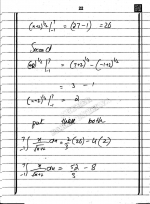 (x+2)^{3/2}]_{-1}^{7} = (27-1) = 26
Second
(x+2)^{1/2}]_{-1}^{7} = (7+2)^{1/2} - (-1+2)^{1/2}
= 3 - 1
(x+2)^{1/2}]_{-1}^{7} = 2
put both
∫_{-1}^{7} x/√(x+2) dx = 2/3 (26) - 4(2)
∫_{-1}^{7} x/√(x+2) dx = 52/3 - 8